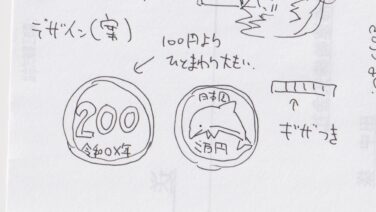 デザイン(案)
100円より
ひとまわり大きい
200
令和OX年
日本国
弐百円
ギザつき